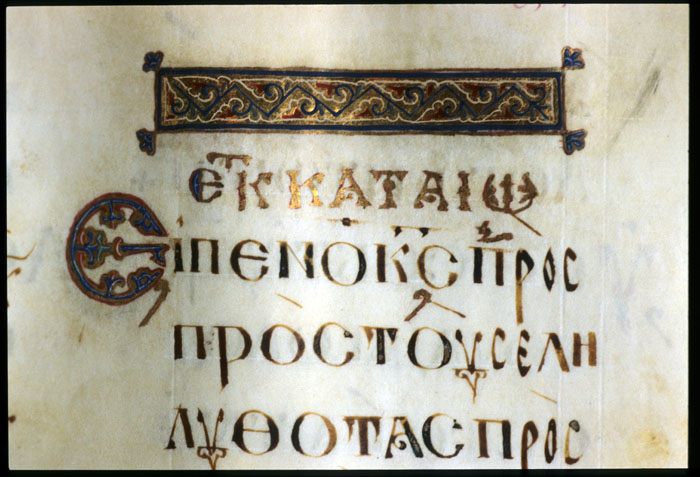 ΕΚ ΚΑΤΑ ΙΩ
ΕΙΠΕΝ Ο ΚΣ ΠΡΟΣ
ΠΡΟΣ ΤΟΥΣ ΕΛΗ
ΛΥΘΟΤΑΣ ΠΡΟΣ